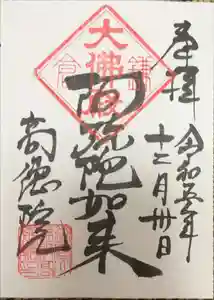 奉拝
令和 年
十二月卅日
大佛殿
鎌倉
阿弥陀如来
高徳院